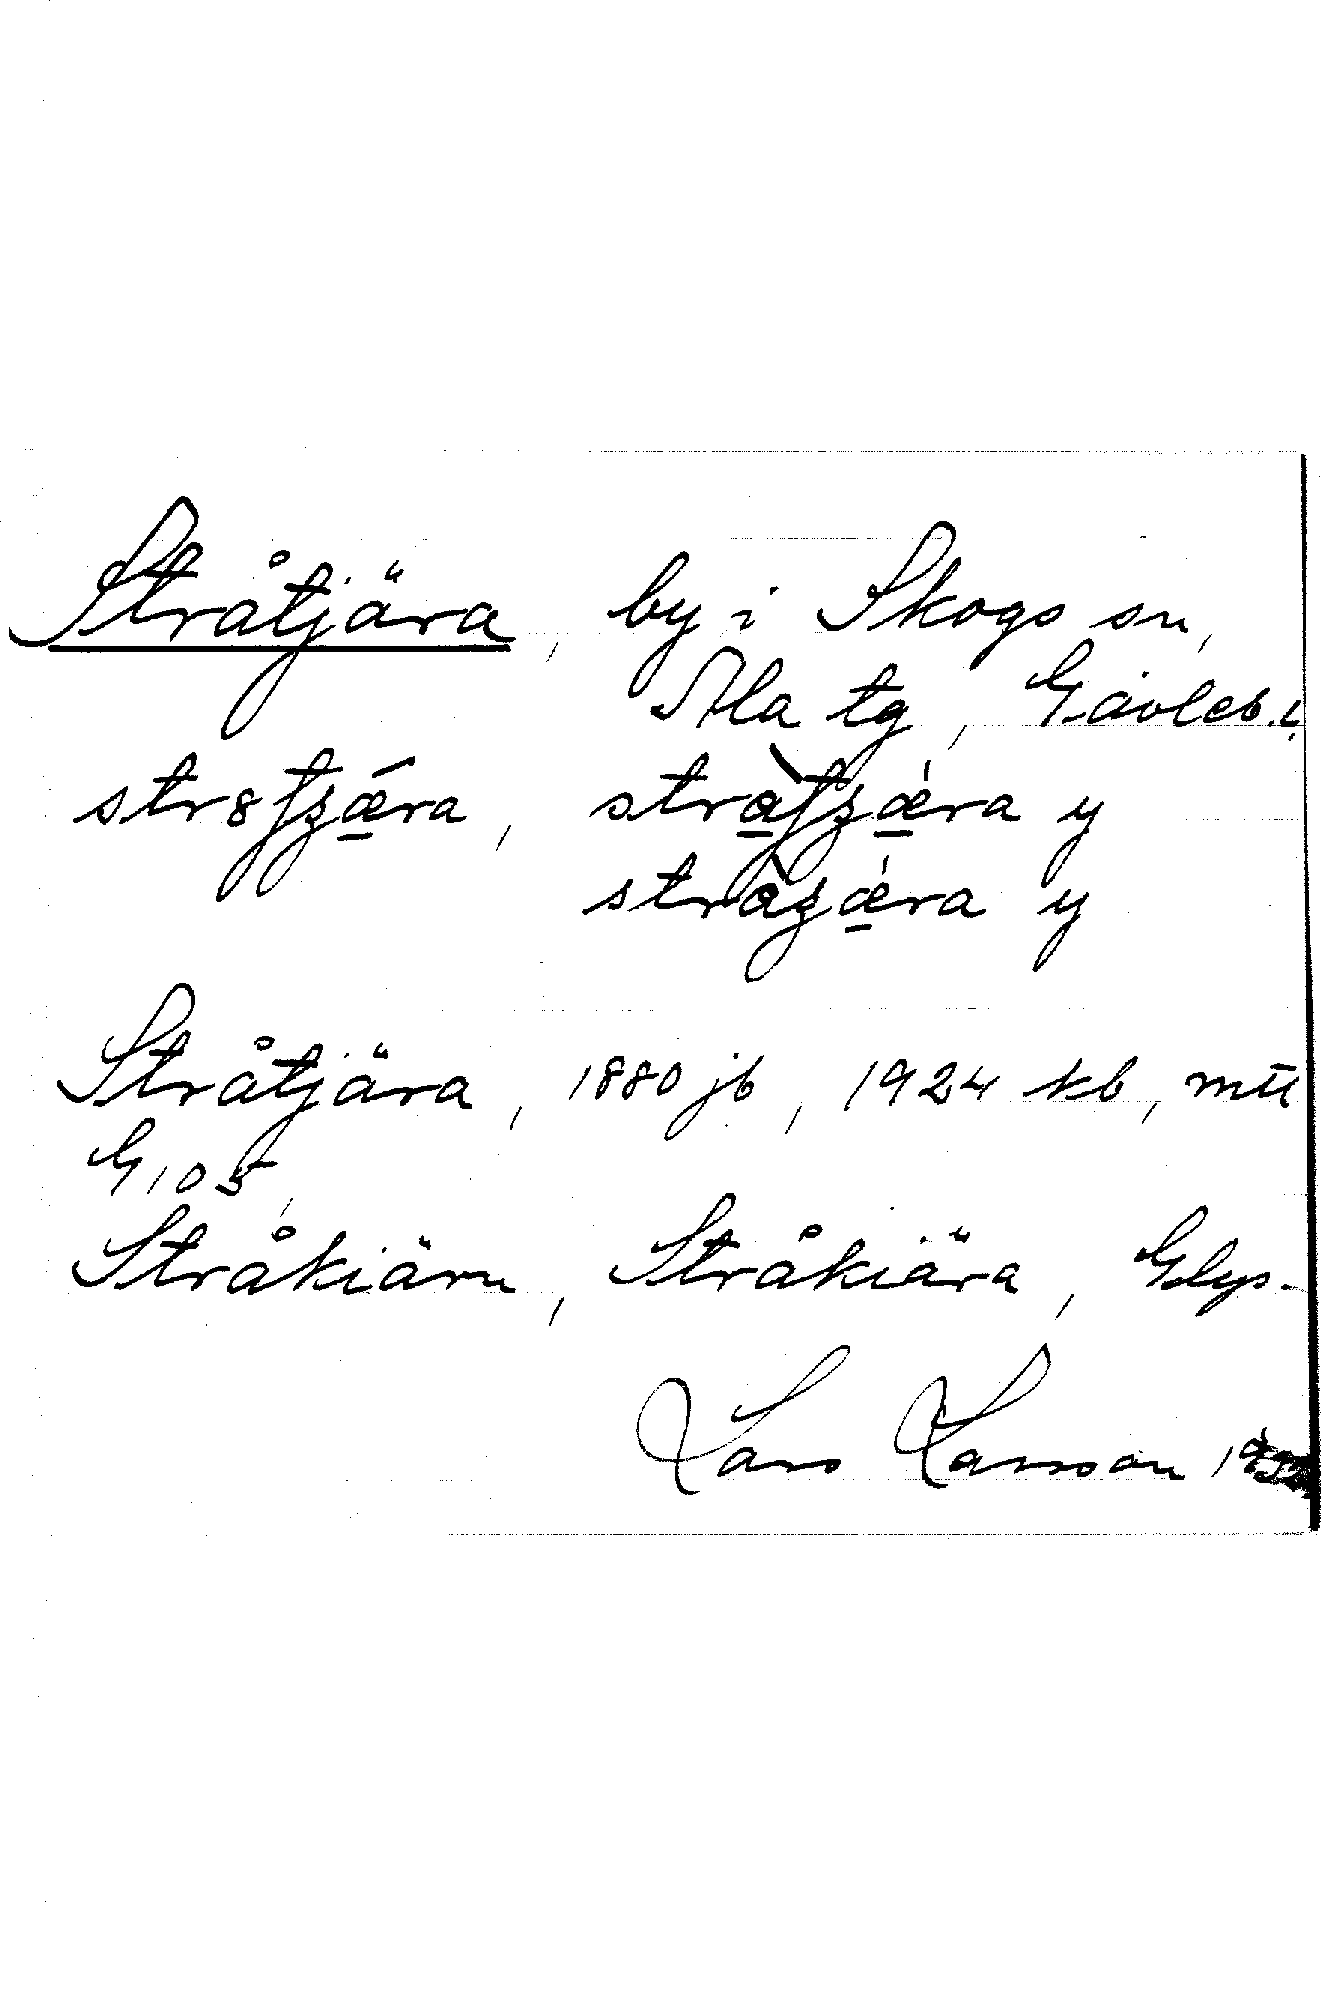 Stråtjära, by i Skogs sn,
Ala tg, Gävleb. l
strătʒǽra, stràtʒǽra y
stràʒǽra y
Stråtjära, 1880 jb, 1924 kb, mtl
G 105,
Stråkiäru, Stråkiära, Glys-
Lars Larsson